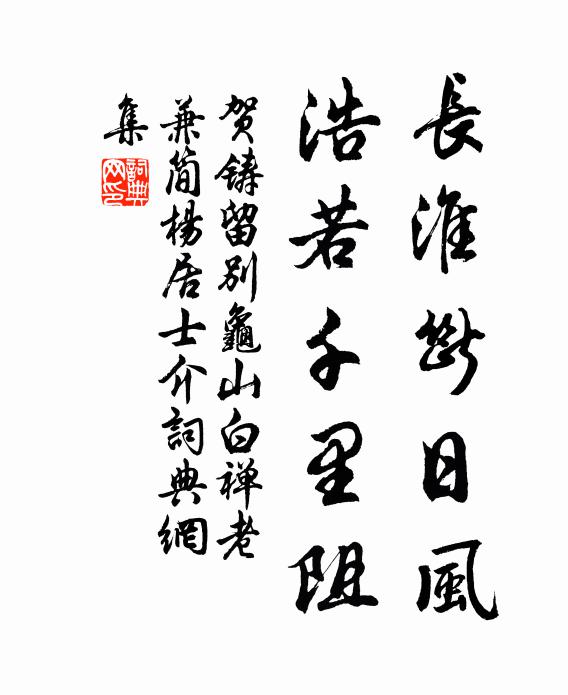 長淮斷日風
浩若千里阻
贺鑄留别龜山白禅老
兼简楊居士介詞典網
集
詞典
网印